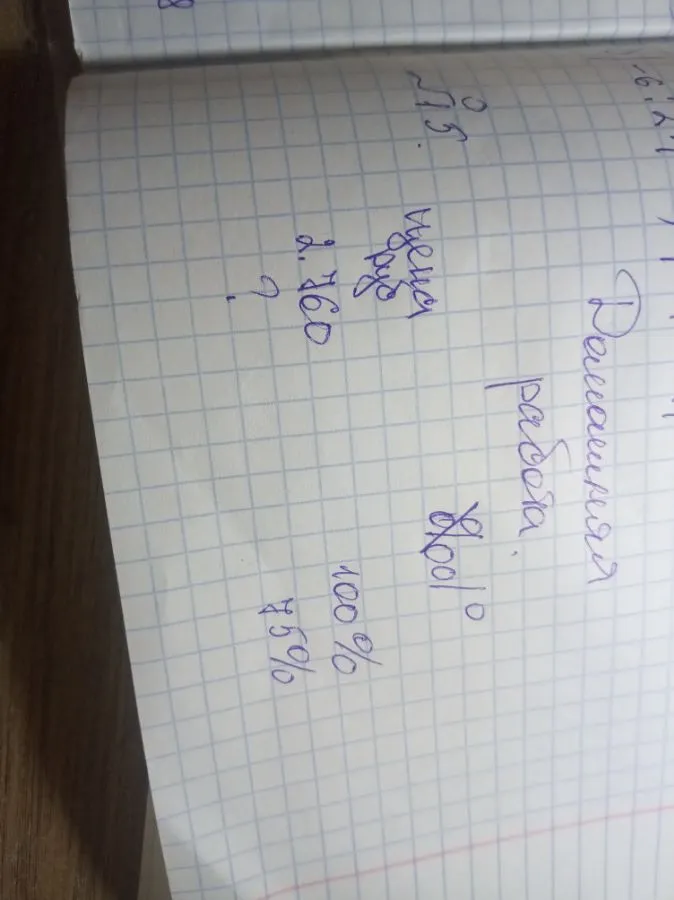 Домашняя
работа.
№15.
цена %
руб
2.760 100%
? 75%